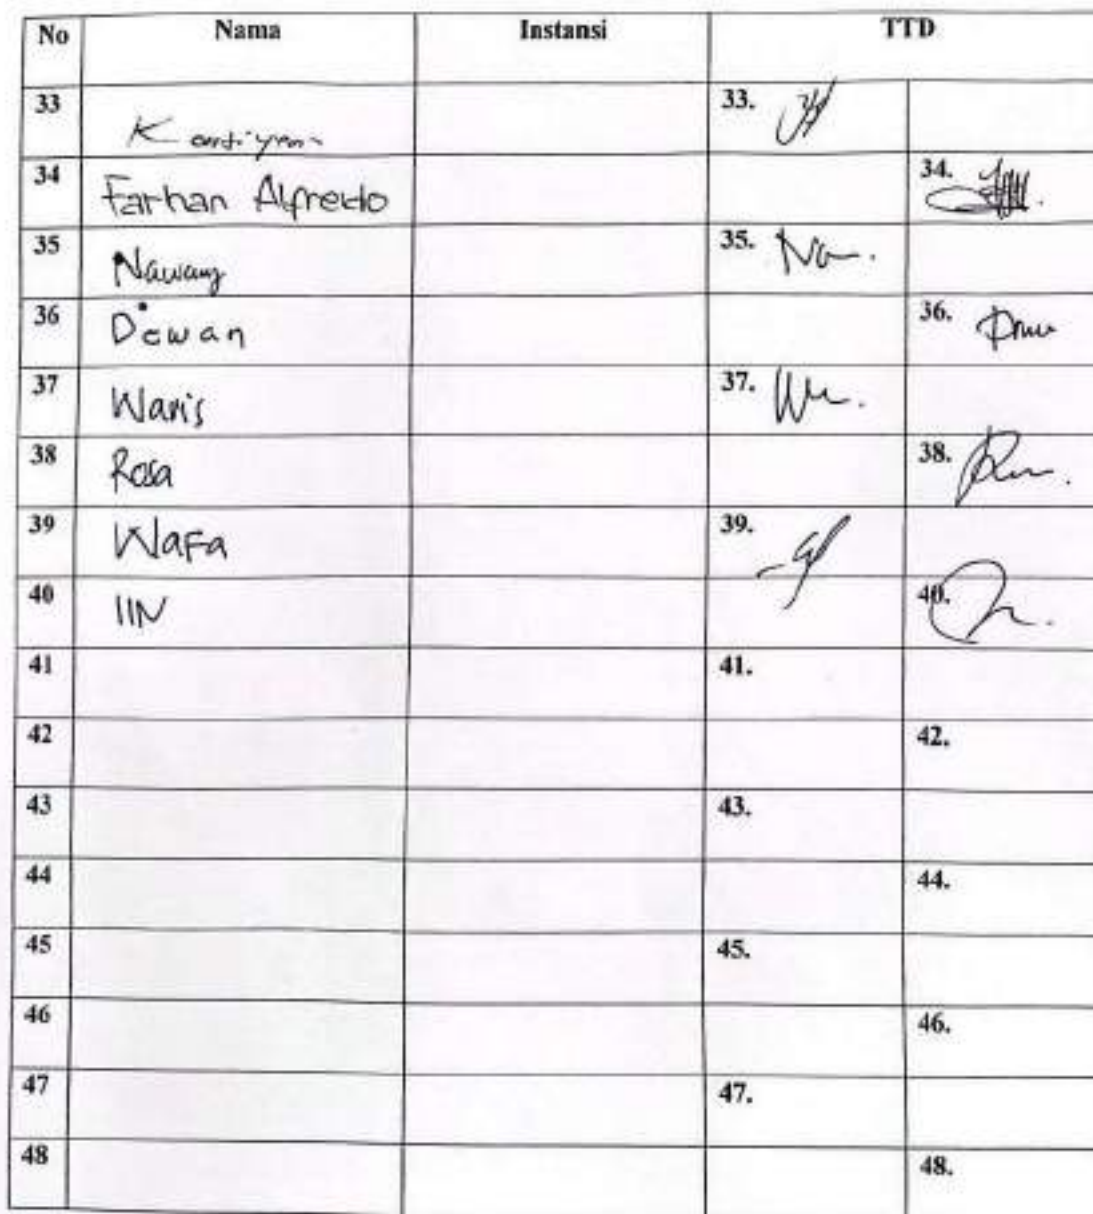 No Nama Instansi TTD
33 33.
34 Farhan Alfredo 34.
35 Nawang 35.
36 Dewan 36.
37 Waris 37.
38 Rosa 38.
39 Wafa 39.
40 IIN 40.
41 41.
42 42.
43 43.
44 44.
45 45.
46 46.
47 47.
48 48.